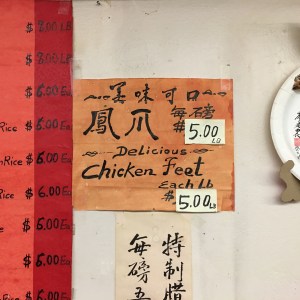 $ 8.00 LB
$ 8.00 LB
$ 6.00 Ea
Rice $ 6.00 Ea
$ 6.00 Ea
Rice $ 6.00 Ea
$ 6.00 Ea
$ 6.00 Ea
$ 6.00 Ea
~美味可口~
鳳爪 每磅
$ 5.00 LB
~Delicious~
Chicken Feet
Each Lb
$ 5.00 LB
特制腊
每磅五